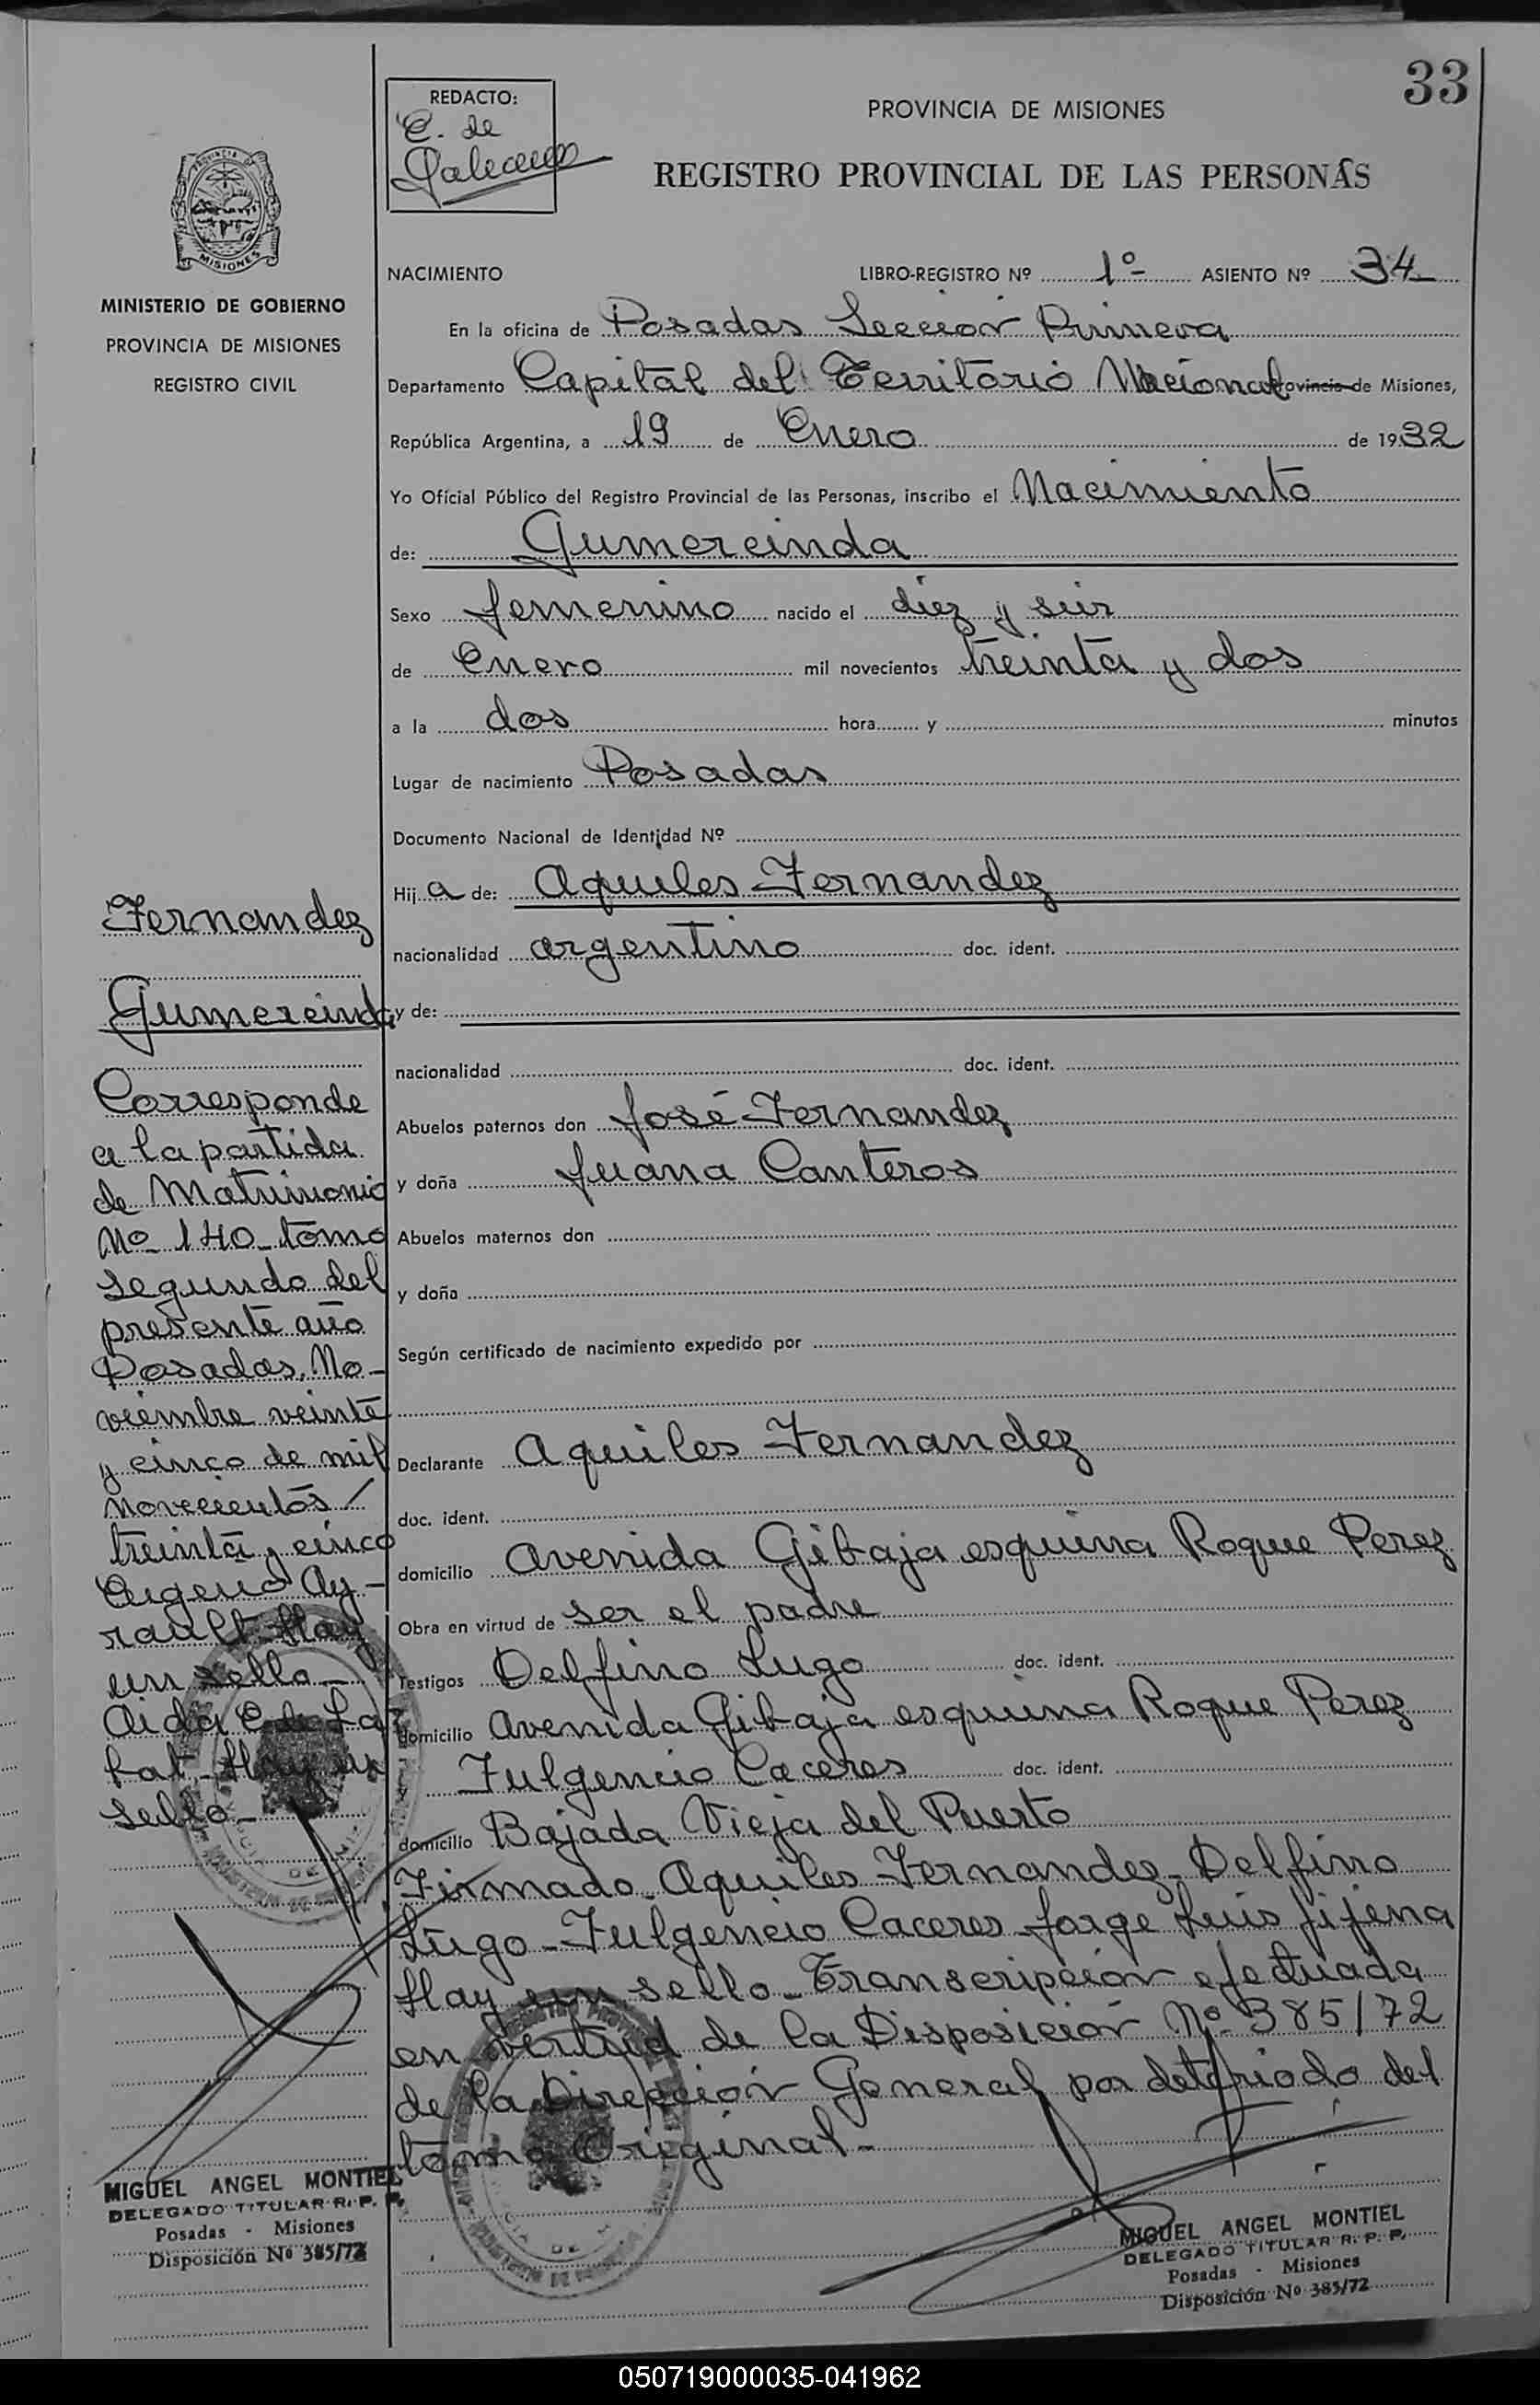 33
REDACTO:
C. de
PROVINCIA DE MISIONES
REGISTRO PROVINCIAL DE LAS PERSONAS
MISIONES
MINISTERIO DE GOBIERNO
PROVINCIA DE MISIONES
REGISTRO CIVIL
NACIMIENTO LIBRO-REGISTRO Nº 1º ASIENTO Nº 34
En la oficina de Posadas Sección Primera
Departamento Capital del Territorio Nacional Provincia de Misiones,
República Argentina, a 19 de Enero de 1932
Yo Oficial Público del Registro Provincial de las Personas, inscribo el Nacimiento
de: Gumercinda
Sexo femenino nacido el diez y seis
de Enero mil novecientos treinta y dos
a la dos hora y minutos
Lugar de nacimiento Posadas
Documento Nacional de Identidad Nº
Hij a de: Aquiles Fernandez
nacionalidad argentino doc. ident.
y de:
nacionalidad doc. ident.
Abuelos paternos don José Fernandez
y doña Juana Canteros
Abuelos maternos don
y doña
Según certificado de nacimiento expedido por
Declarante Aquiles Fernandez
doc. ident.
domicilio Avenida Gibaja esquina Roque Perez
Obra en virtud de ser el padre
Testigos Delfino Lugo doc. ident.
domicilio Avenida Gibaja esquina Roque Perez
Fulgencio Caceres doc. ident.
domicilio Bajada Vieja del Puerto
Firmado Aquiles Fernandez - Delfino
Lugo - Fulgencio Caceres Jorge Luis Jijena
Hay un sello - Transcripción efectuada
en virtud de la Disposición Nº 385/72
de la Dirección General por deteriodo del
tomo Original -
Fernandez
Gumercinda
Corresponde
a la partida
de Matrimonio
Nº 140 tomo
segundo del
presente año
Posadas, No-
viembre veinte
y cinco de mil
novecientos /
treinta y cinco
Ay-
rault Hay
un sello -
Aida C. de La
Hay un
sello -
MIGUEL ANGEL MONTIEL
DELEGADO TITULAR R. P. P.
Posadas - Misiones
Disposición Nº 385/72
MIGUEL ANGEL MONTIEL
DELEGADO TITULAR R. P. P.
Posadas - Misiones
Disposición Nº 385/72
050719000035-041962